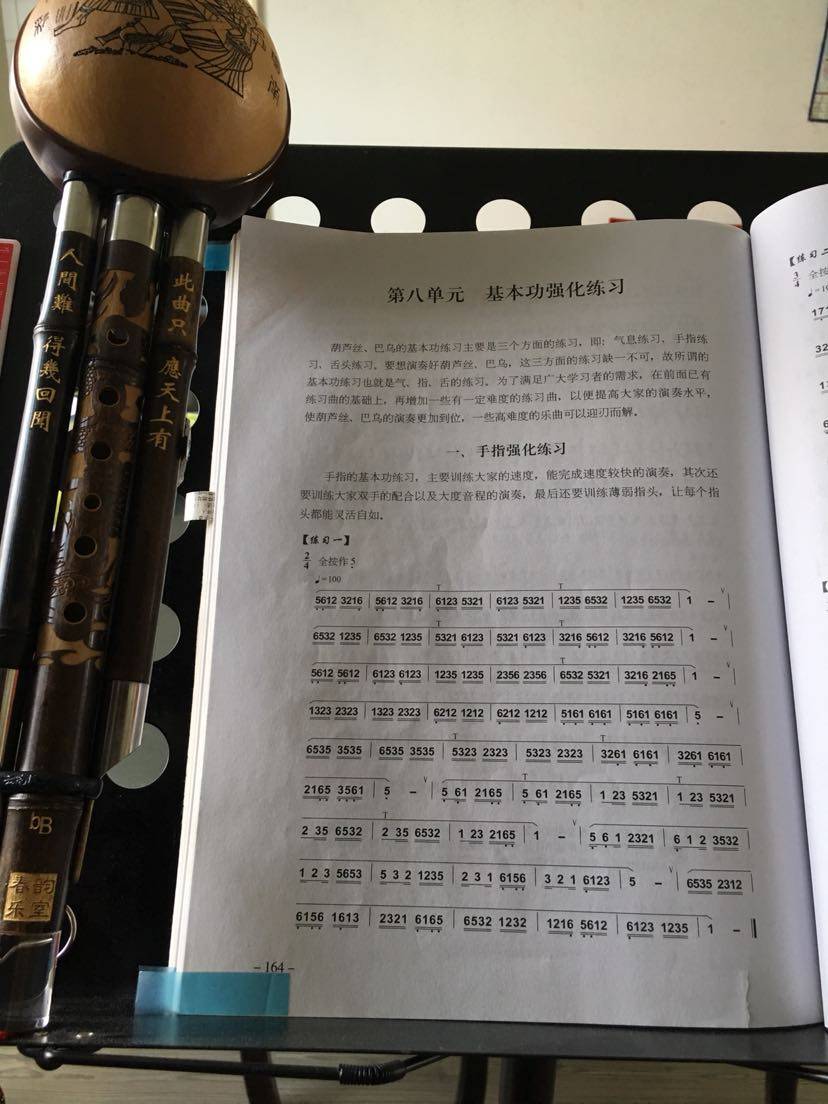 人間難得幾回聞
此曲只應天上有
bB
春韵
乐室
第八单元 基本功强化练习
葫芦丝、巴乌的基本功练习主要是三个方面的练习，即：气息练习、手指练
习、舌头练习。要想演奏好葫芦丝、巴乌，这三方面的练习缺一不可，故所谓的
基本功练习也就是气、指、舌的练习。为了满足广大学习者的需求，在前面已有
练习曲的基础上，再增加一些有一定难度的练习曲，以便提高大家的演奏水平，
使葫芦丝、巴乌的演奏更加到位，一些高难度的乐曲可以迎刃而解。
一、手指强化练习
手指的基本功练习，主要训练大家的速度，能完成速度较快的演奏，其次还
要训练大家双手的配合以及大度音程的演奏，最后还要训练薄弱指头，让每个指
头都能灵活自如。
【练习一】
2/4 全按作5
♩=100
5612 3216 | 5612 3216 | 6123 5321 | 6123 5321 | 1235 6532 | 1235 6532 | 1 - |
6532 1235 | 6532 1235 | 5321 6123 | 5321 6123 | 3216 5612 | 3216 5612 | 1 - |
5612 5612 | 6123 6123 | 1235 1235 | 2356 2356 | 6532 5321 | 3216 2165 | 1 - |
1323 2323 | 1323 2323 | 6212 1212 | 6212 1212 | 5161 6161 | 5161 6161 | 5 - |
6535 3535 | 6535 3535 | 5323 2323 | 5323 2323 | 3261 6161 | 3261 6161 |
2165 3561 | 5 - | 5 61 2165 | 5 61 2165 | 1 23 5321 | 1 23 5321
2 35 6532 | 2 35 6532 | 1 23 2165 | 1 - | 5 6 1 2321 | 6 1 2 3532 |
1 2 3 5653 | 5 3 2 1235 | 2 3 1 6156 | 3 2 1 6123 | 5 - | 6535 2312 |
6156 1613 | 2321 6165 | 6532 1232 | 1216 5612 | 6123 1235 | 1 - ‖
- 164 -
【练习二
3/4 全按